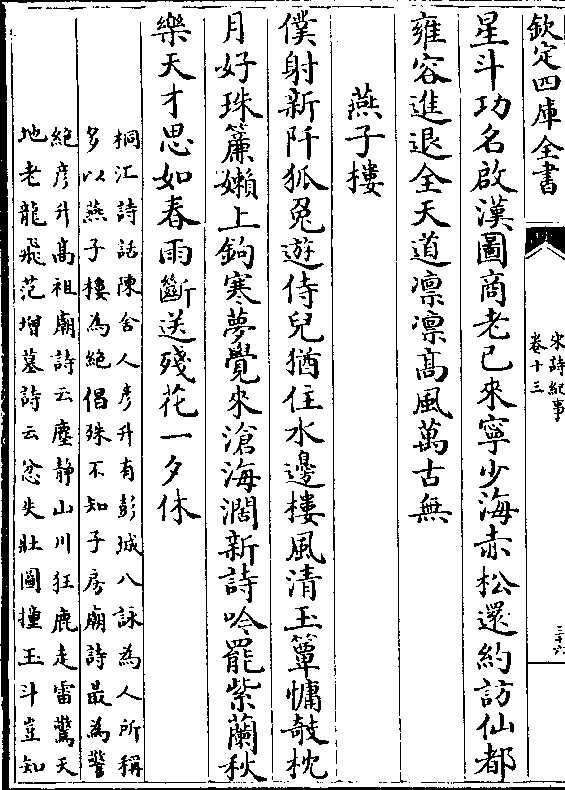 欽定四庫全書
宋詩紀事
卷十三
三十六
星斗功名啟漢圖商老已來寧少海赤松還約訪仙都
雍容進退全天道凛凛髙風萬古無
燕子樓
僕射新阡狐兎遊侍兒猶住水邊樓風清玉簟慵攲枕
月好珠簾嬾上鉤寒夢覺來滄海濶新詩吟罷紫蘭秋
樂天才思如春雨斷送殘花一夕休
桐江詩話陳舍人彦升有彭城八詠為人所稱
多以燕子樓為絶倡殊不知子房廟詩最為警
絶彦升髙祖廟詩云塵静山川狂鹿走雷驚天
地老龍飛范增墓詩云忿失壯圖撞玉斗豈知